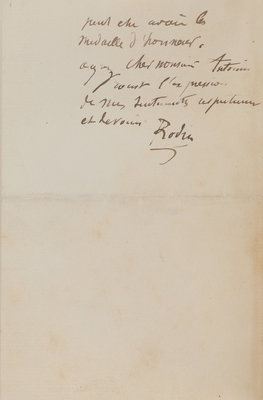 peut etre avoir la
medaille d'honneur.
agreez cher monsieur Antonin
Proust l'expression
de mes sentiments respectueux
et devoués
Rodin